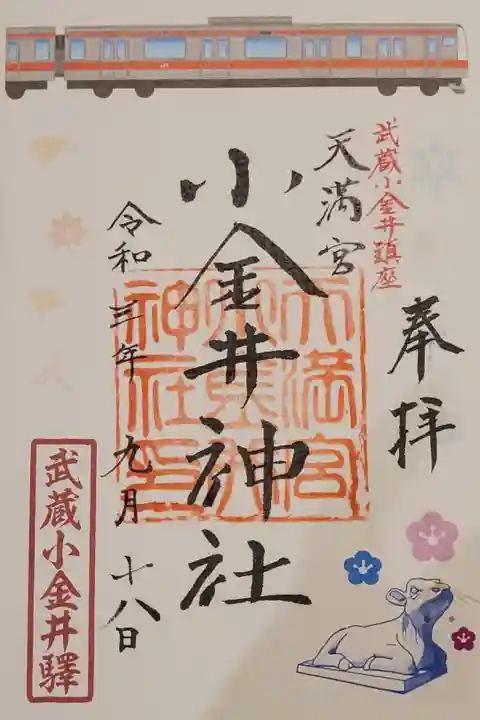 武蔵小金井鎮座
奉拝
天満宮
小金井神社
令和三年九月十八日
天満宮
神社印
武蔵小金井驛